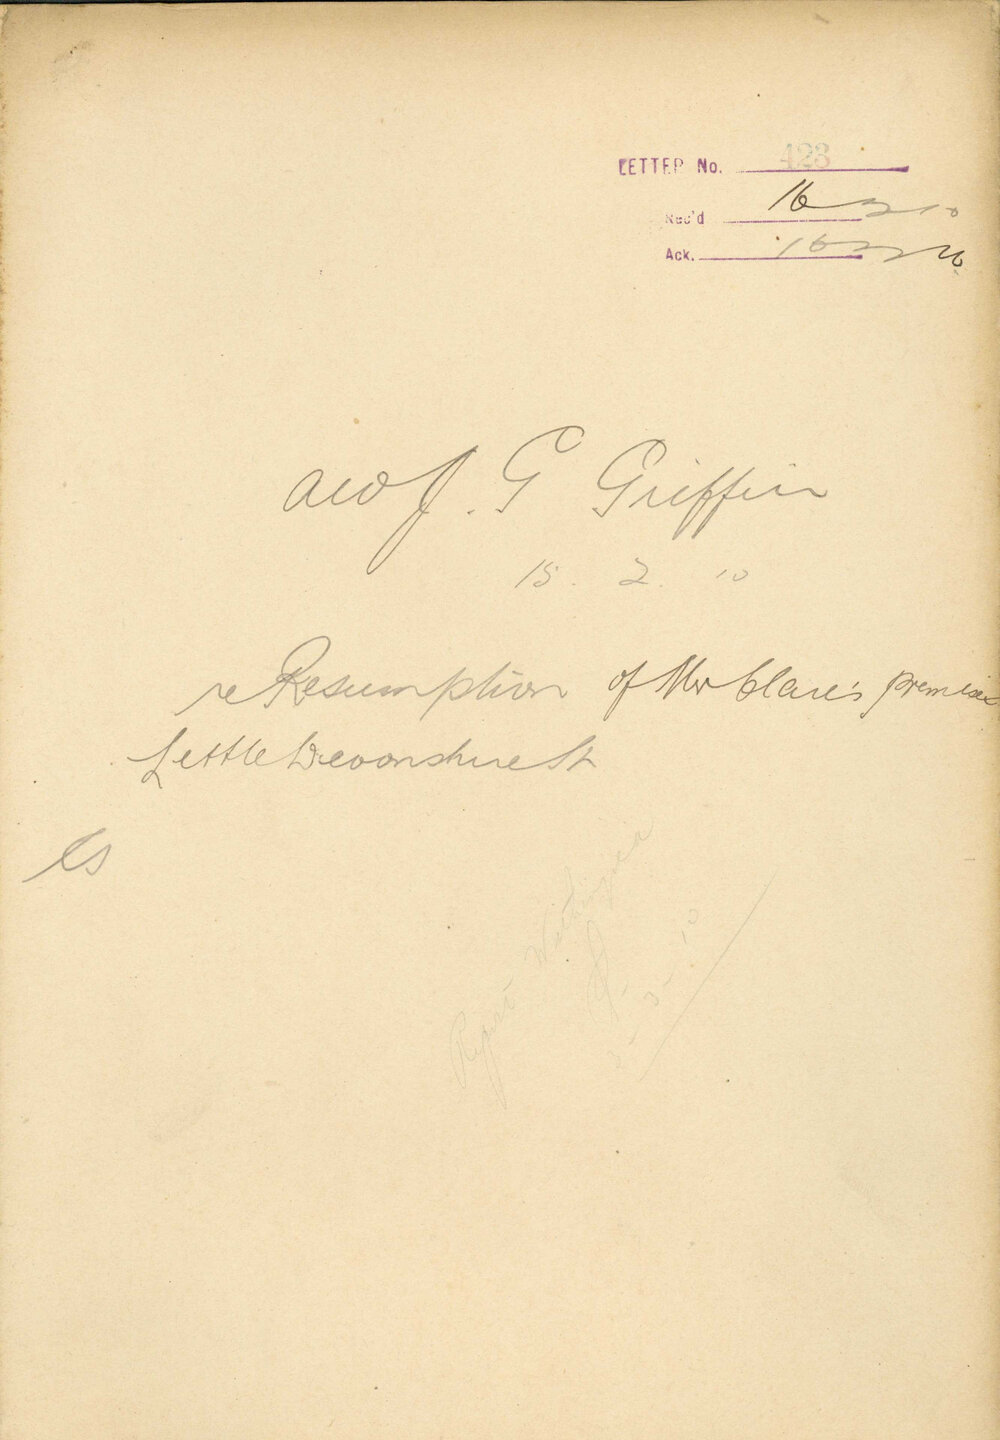 LETTER No. 423
Rec'd 16 2 10
Ack. 16 2 10
Ald J. G Griffin
15. 2. 10
re Resumption of Mr Clare's premises
Little Devonshire St
Cs
Report
3-3-10